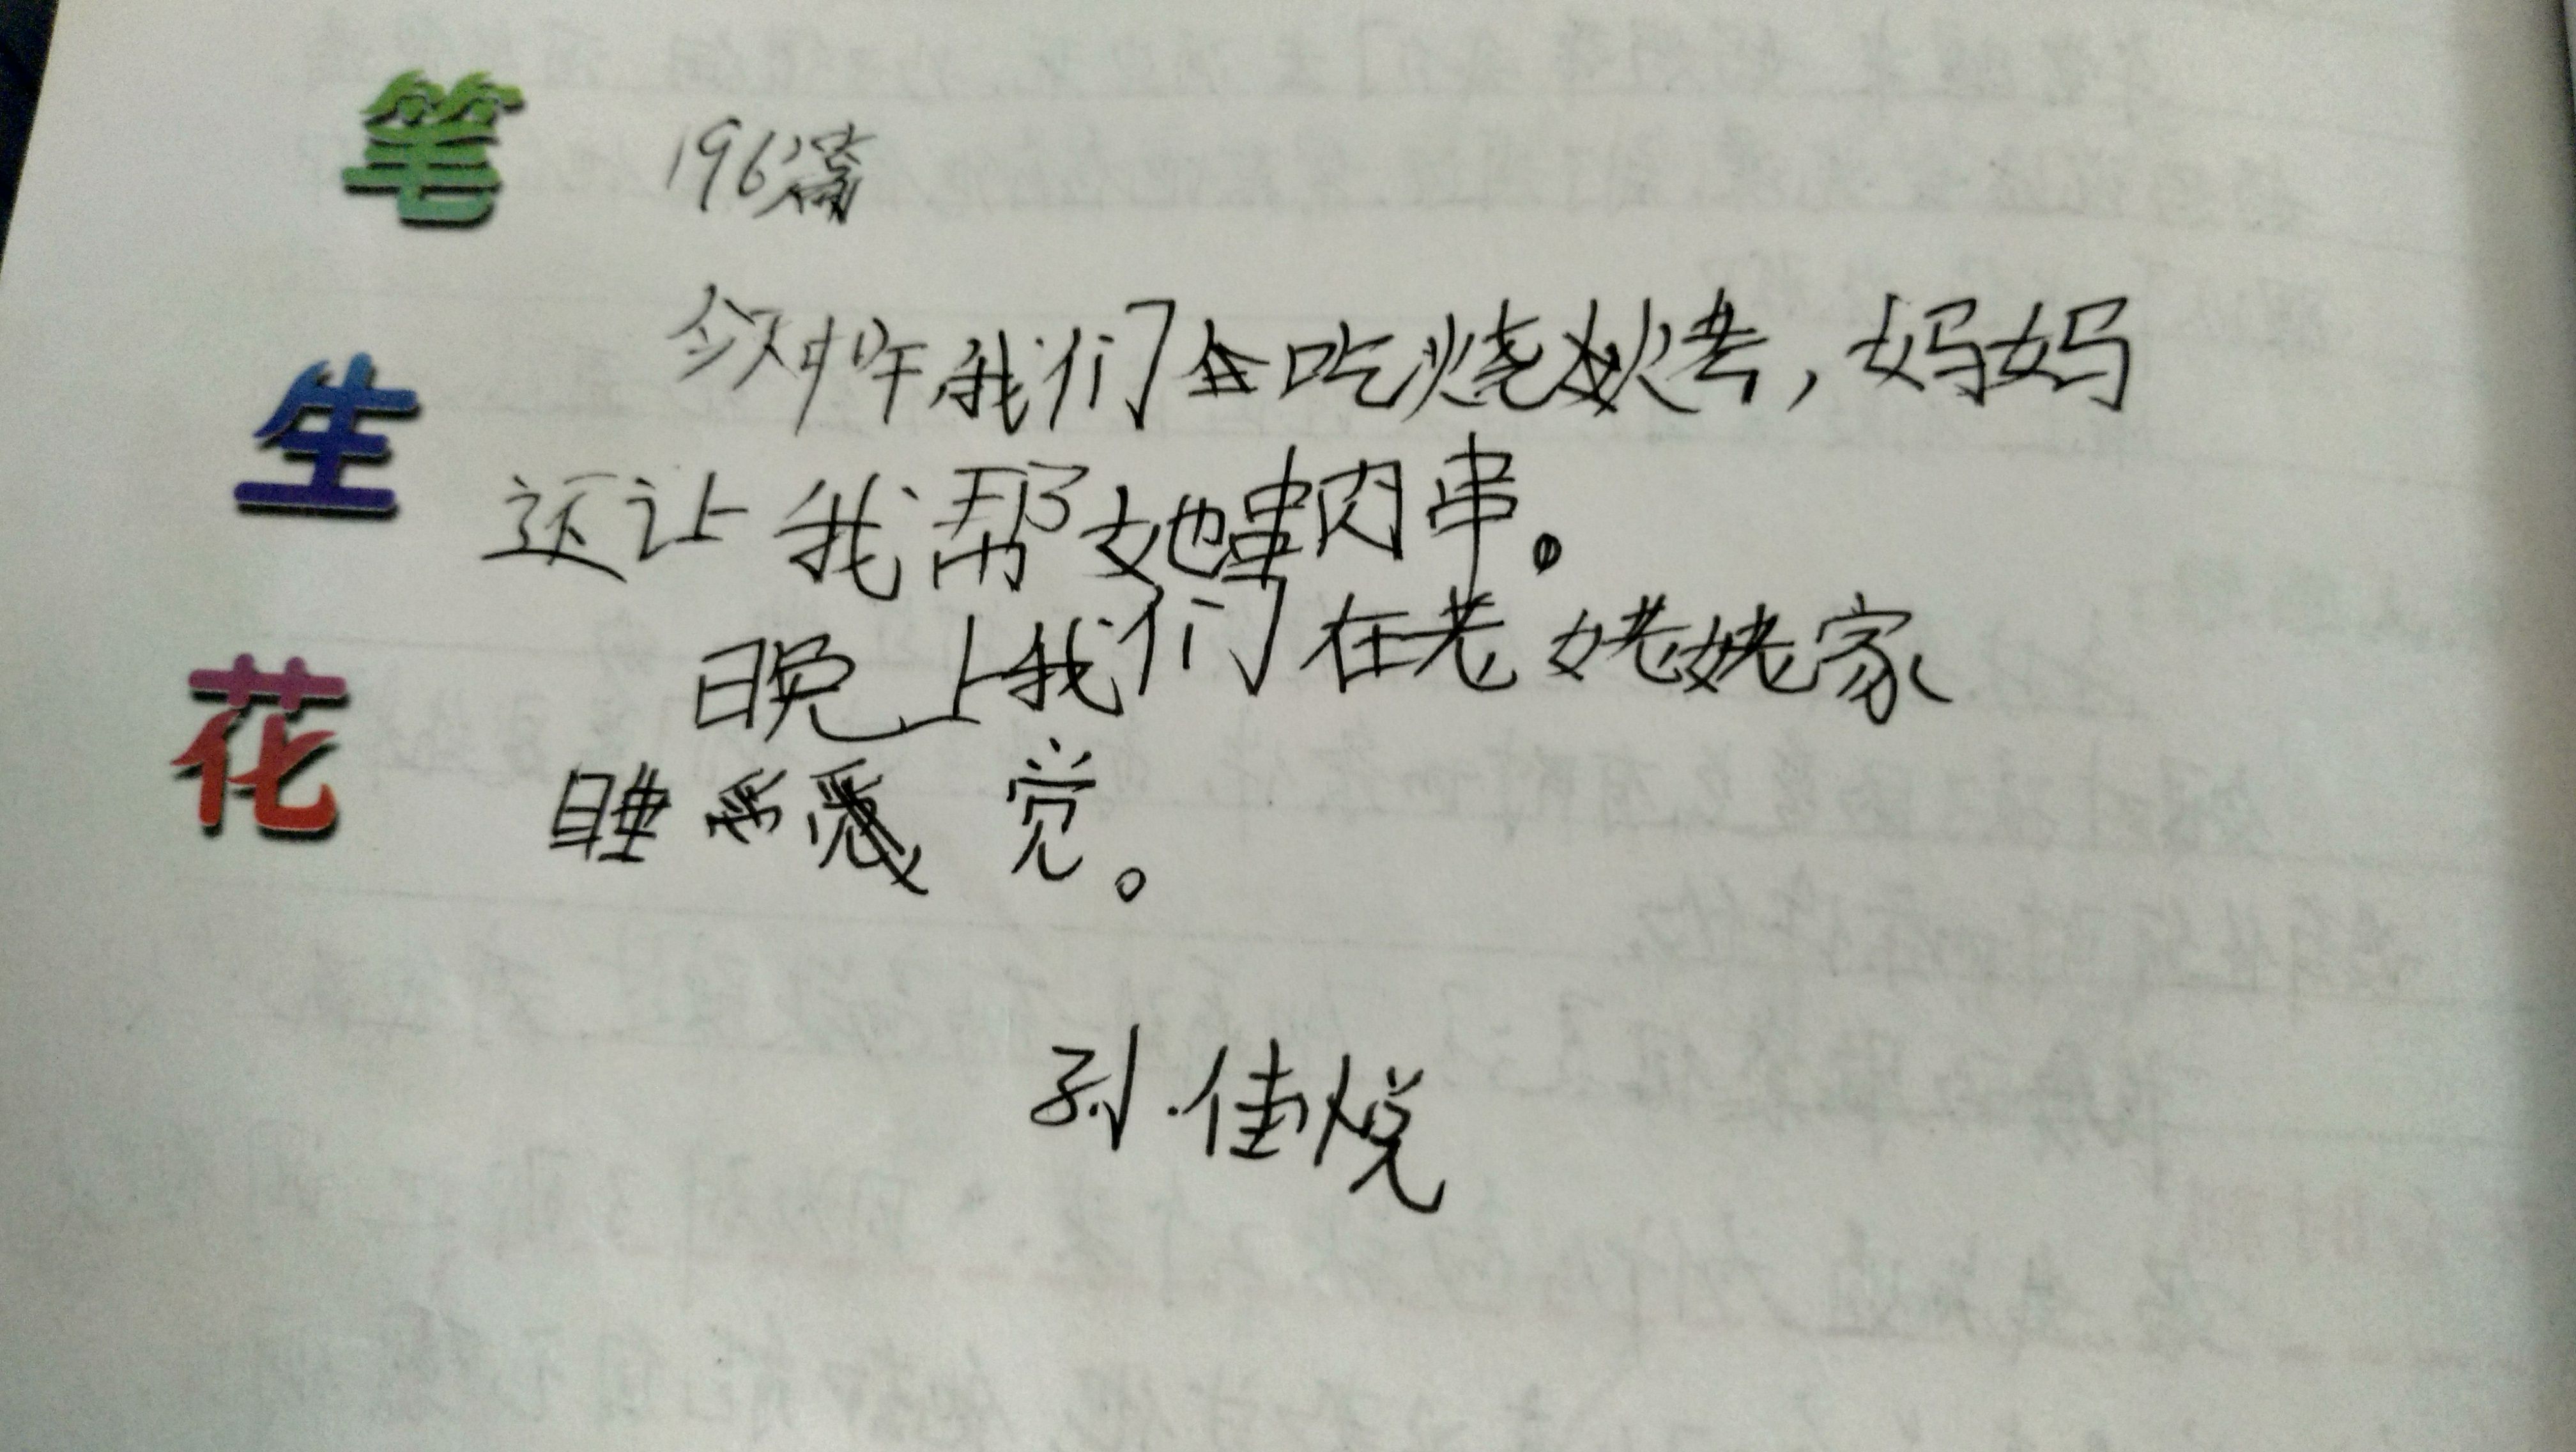 笔生花
196篇
今天中午我们去吃烧烤，妈妈
还让我帮她串肉串。
晚上我们在老姥姥家
睡觉。
孙佳悦